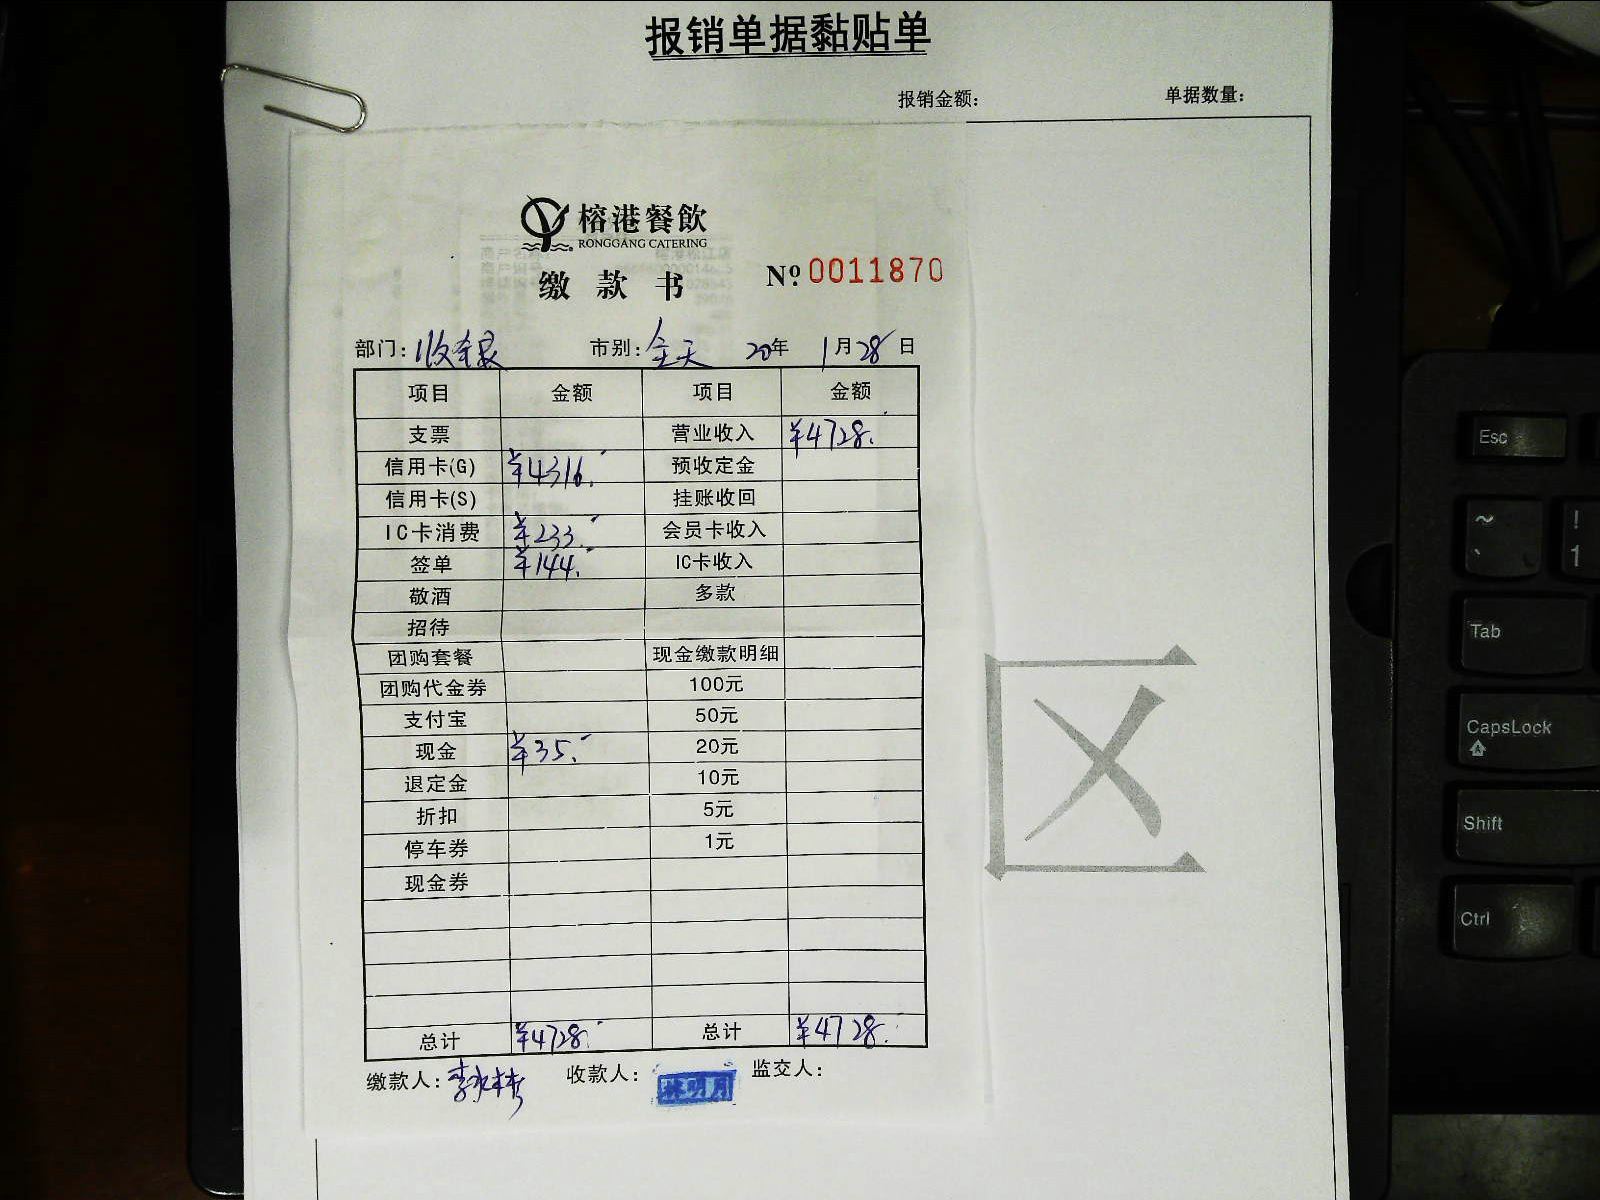 报销单据黏贴单
报销金额: 单据数量:
榕港餐飲
RONGGANG CATERING
缴款书 Nº 0011870
部门: 收银 市别: 全天 20年 1月28日
项目 金额 项目 金额
支票 营业收入 ¥4728.-
信用卡(G) ¥4316.- 预收定金
信用卡(S) 挂账收回
IC卡消费 ¥233.- 会员卡收入
签单 ¥144.- IC卡收入
敬酒 多款
招待
团购套餐 现金缴款明细
团购代金券 100元
支付宝 50元
现金 ¥35.- 20元
退定金 10元
折扣 5元
停车券 1元
现金券
总计 ¥4728.- 总计 ¥4728.-
缴款人: 收款人: 林明月 监交人:
区